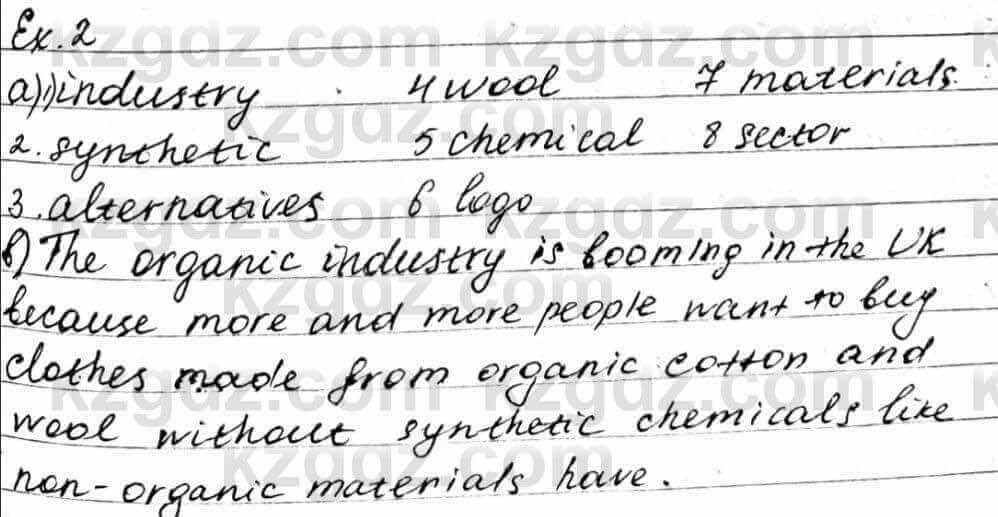 Ex. 2
a) 1) industry 4 wool 7 materials.
2. synthetic 5 chemical 8 sector
3. alternatives 6 logo
b) The organic industry is booming in the UK
because more and more people want to buy
clothes made from organic cotton and
wool without synthetic chemicals like
non-organic materials have.
kzgdz.com kzgdz.com
kzgdz.com
kzgdz.com kzgdz.com
kzgdz.com
kzgdz.com kzgdz.com
kzgdz.com